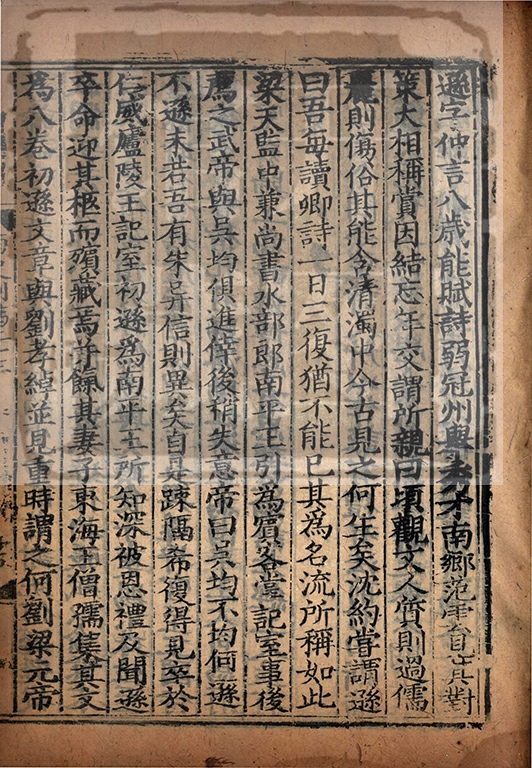 遜字仲言八歲能賦詩弱冠州舉秀才南鄉范雲見其對
策大相稱賞因結忘年交謂所親曰頃觀文人質則過儒
麗則傷俗其能含清濁中今古見之何生矣沈約嘗謂遜
曰吾每讀卿詩一日三復猶不能已其為名流所稱如此
梁天監中兼尚書水部郎南平王引為賓客掌記室事後
薦之武帝與吳均俱進倖後稍失意帝曰吳均不均何遜
不遜未若吾有朱异信則異矣自是踈隔希復得見卒於
仁威廬陵王記室初遜為南平王所知深被恩禮及聞遜
卒命迎其柩而殯藏焉并餼其妻子東海王僧孺集其文
為八卷初遜文章與劉孝綽並見重時謂之何劉梁元帝